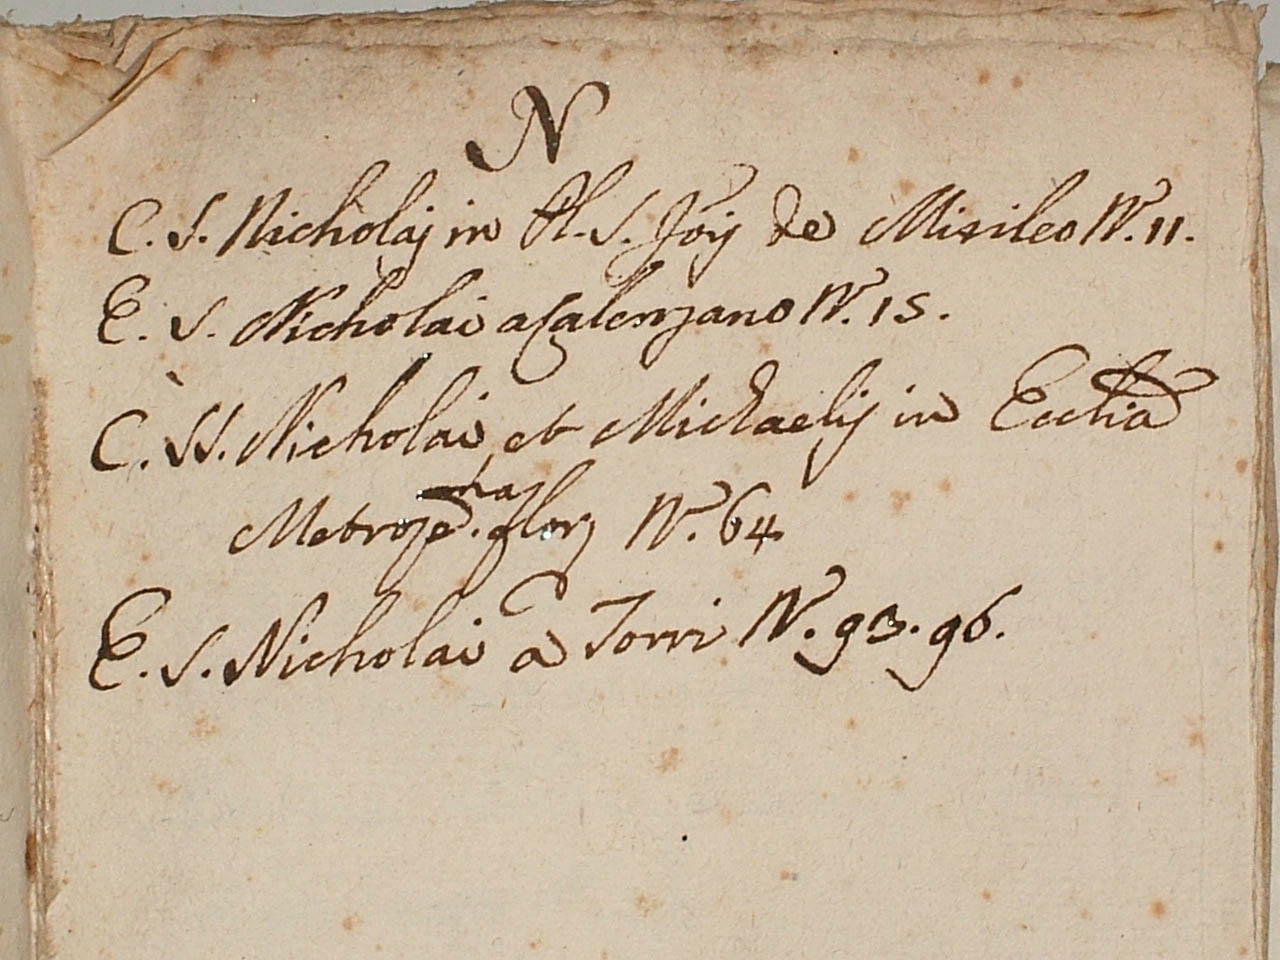 N
C. S. Nicholaj in Pl. S. Joij de Misileo N. 11.
E. S. Nicholai a Calenzano N. 15.
C. SS. Nicholai et Michaelij in Ecclia
Metrop. flor N. 64
E. S. Nicholai a Torri N. 93. 96.